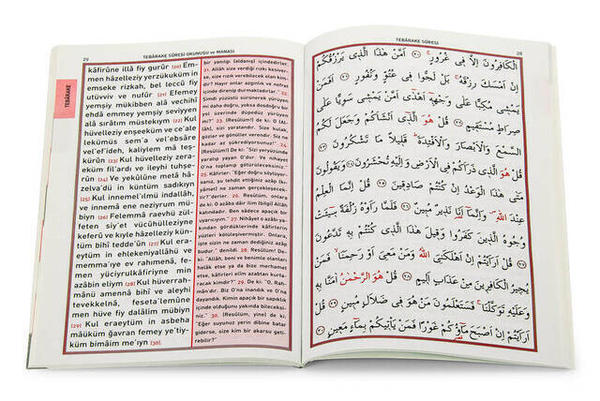 29 TEBÂRAKE SÛRESİ OKUNUŞU ve MANASI
TEBÂRAKE
kâfirûne illâ fiy gurûr [20] Em-
men hâzelleziy yerzükuküm in
emseke rizkah, bel leccû fiy
utüvviv ve nufûr [21] Efemey
yemşiy mükibben alâ vechihî
ehdâ emmey yemşiy seviyyen
alâ sırâtım müstekıym [22] Kul
hüvelleziy enşeeküm ve ce'ale
lekümüs sem'a vel'ebsâre
vel'ef'ideh, kaliylem mâ teş-
kürûn [23] Kul hüvelleziy zera-
eküm fil'ardı ve ileyhi tuhşe-
rûn [24] Ve yekûlûne metâ hâ-
zelva'dü in küntüm sadikıyn
[25] Kul innemel'ılmü indallah,
ve innemâ ene neziyrum mü-
biyn [26] Felemmâ raevhü zül-
feten siy'et vücûhülleziyne
keferû ve kıyle hâzelleziy kün-
tüm bihî tedde'ûn [27] Kul era-
eytüm in ehlekeniyallâhü ve
memma'ıye ev rahımenâ, fe-
men yüciyrulkâfiriyne min
azâbin eliym [28] Kul hüverrah-
mânü amennâ bihî ve aleyhi
tevekkelnâ, feseta'lemûne
men hüve fiy dalâlim mübiyn
[29] Kul eraeytüm in asbeha
mâüküm ğavran femey ye'tiy-
küm bimâim me'ıyn [30]
bir yanılgı (aldanış) içindedirler.
21. Allah size verdiği rızkı kesiver-
se, size rızık verebilecek olan kim-
dir? Hayır onlar azgınlık ve nefret
içinde direnip durmaktadırlar. 22.
Şimdi yüzüstü sürünerek yürüyen
mi daha doğru, yoksa dosdoğru bir
yol üzerinde düpedüz yürüyen
mi? 23. (Resûlüm!) De ki: O (Al-
lah), sizi yaratandır. Size kulak,
gözler ve gönüller verendir. Siz ne
kadar az şükrediyorsunuz! 24.
(Resûlüm!) De ki: "Sizi yeryüzünde
yaratıp yayan O'dur. Ve nihayet
O'na toplanıp götürüleceksiniz."
25. Kâfirler: "Eğer doğru söylüyor-
sanız, şu tehdit ettiğiniz azâp (kı-
yamet) ne zaman gerçekleşecek-
tir?" derler. 26. (Resûlüm!) De ki:
O azâba dâir ilim (bilgi) Allah
katındadır. Ben sadece apaçık bir
uyarıcıyım." 27. Nihâyet o azâbı ya-
kından gördüklerinde kâfirlerin
yüzleri kötüleşivermiştir. Onlara,
işte sizin ne zaman dediğiniz azâp
budur," denildi. 28. (Resûlüm!) De
ki. "Allah, beni ve benimle olanları
helâk etse ya da bize merhamet
etse, kâfirleri elîm azabtan kurta-
racak kimdir?" 29. De ki. "O, Rah-
mandır. Biz O'na inandık ve O'na
dayandık. Kimin apaçık bir sapıklık
içinde olduğunu yakında bilecek-
siniz." 30. (Resûlüm), yine de ki.
"Eğer suyunuz yerin dibine batar
giderse, size kim bir akarsu getire-
bilir?"
TEBÂRAKE SÛRESİ 28
الْكَافِرُونَ اِلَّا فِى غُرُورٍ ﴿٢٠﴾ اَمَّنْ هٰذَا الَّذِى يَرْزُقُكُمْ
اِنْ اَمْسَكَ رِزْقَهُ ۚ بَلْ لَجُّوا فِى عُتُوٍّ وَنُفُورٍ ﴿٢١﴾ اَفَمَنْ
يَمْشِى مُكِبًّا عَلٰى وَجْهِهٖ اَهْدٰى اَمَّنْ يَمْشِى سَوِيًّا عَلٰى
صِرَاطٍ مُسْتَقِيمٍ ﴿٢٢﴾ قُلْ هُوَ الَّذِى اَنْشَاَكُمْ وَجَعَلَ لَكُمُ
السَّمْعَ وَالْاَبْصَارَ وَالْاَفْئِدَةَ ۜ قَلِيلًا مَا تَشْكُرُونَ ﴿٢٣﴾
قُلْ هُوَ الَّذِى ذَرَاَكُمْ فِى الْاَرْضِ وَاِلَيْهِ تُحْشَرُونَ ﴿٢٤﴾ وَيَقُولُونَ
مَتٰى هٰذَا الْوَعْدُ اِنْ كُنْتُمْ صَادِقِينَ ﴿٢٥﴾ قُلْ اِنَّمَا الْعِلْمُ
عِنْدَ اللّٰهِ ۖ وَاِنَّمَا اَنَا نَذِيرٌ مُبِينٌ ﴿٢٦﴾ فَلَمَّا رَاَوْهُ زُلْفَةً سِيٓئَتْ
وُجُوهُ الَّذِينَ كَفَرُوا وَقِيلَ هٰذَا الَّذِى كُنْتُمْ بِهٖ تَدَّعُونَ ﴿٢٧﴾
قُلْ اَرَاَيْتُمْ اِنْ اَهْلَكَنِىَ اللّٰهُ وَمَنْ مَعِىَ اَوْ رَحِمَنَا ۙ فَمَنْ
يُجِيرُ الْكَافِرِينَ مِنْ عَذَابٍ اَلِيمٍ ﴿٢٨﴾ قُلْ هُوَ الرَّحْمٰنُ اٰمَنَّا بِهٖ
وَعَلَيْهِ تَوَكَّلْنَا ۚ فَسَتَعْلَمُونَ مَنْ هُوَ فِى ضَلَالٍ مُبِينٍ ﴿٢٩﴾ قُلْ
اَرَاَيْتُمْ اِنْ اَصْبَحَ مَاؤُكُمْ غَوْرًا فَمَنْ يَاْتِيكُمْ بِمَاءٍ مَعِينٍ ﴿٣٠﴾